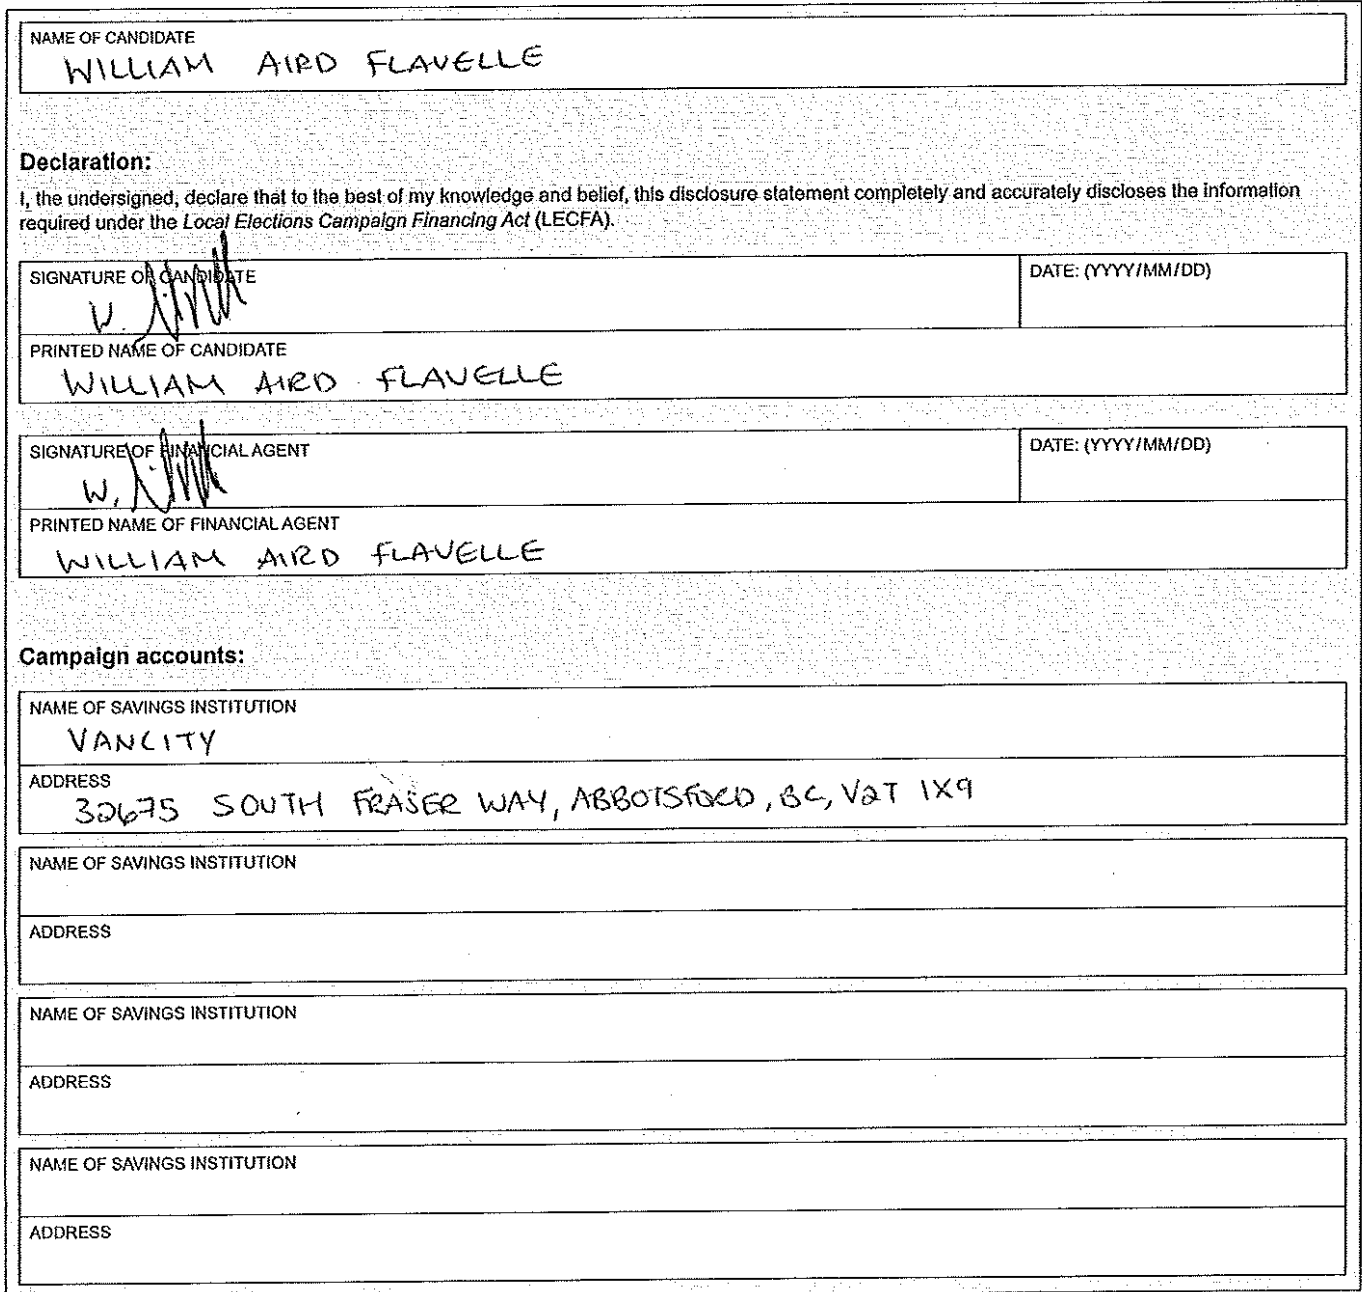 NAME OF CANDIDATE
WILLIAM AIRD FLAVELLE
Declaration:
I, the undersigned, declare that to the best of my knowledge and belief, this disclosure statement completely and accurately discloses the information
required under the Local Elections Campaign Financing Act (LECFA).
SIGNATURE OF CANDIDATE
DATE: (YYYY/MM/DD)
W.
PRINTED NAME OF CANDIDATE
WILLIAM AIRD FLAVELLE
SIGNATURE OF FINANCIAL AGENT
DATE: (YYYY/MM/DD)
W.
PRINTED NAME OF FINANCIAL AGENT
WILLIAM AIRD FLAVELLE
Campaign accounts:
NAME OF SAVINGS INSTITUTION
VANCITY
ADDRESS
32675 SOUTH FRASER WAY, ABBOTSFORD, BC, V2T 1X9
NAME OF SAVINGS INSTITUTION
ADDRESS
NAME OF SAVINGS INSTITUTION
ADDRESS
NAME OF SAVINGS INSTITUTION
ADDRESS